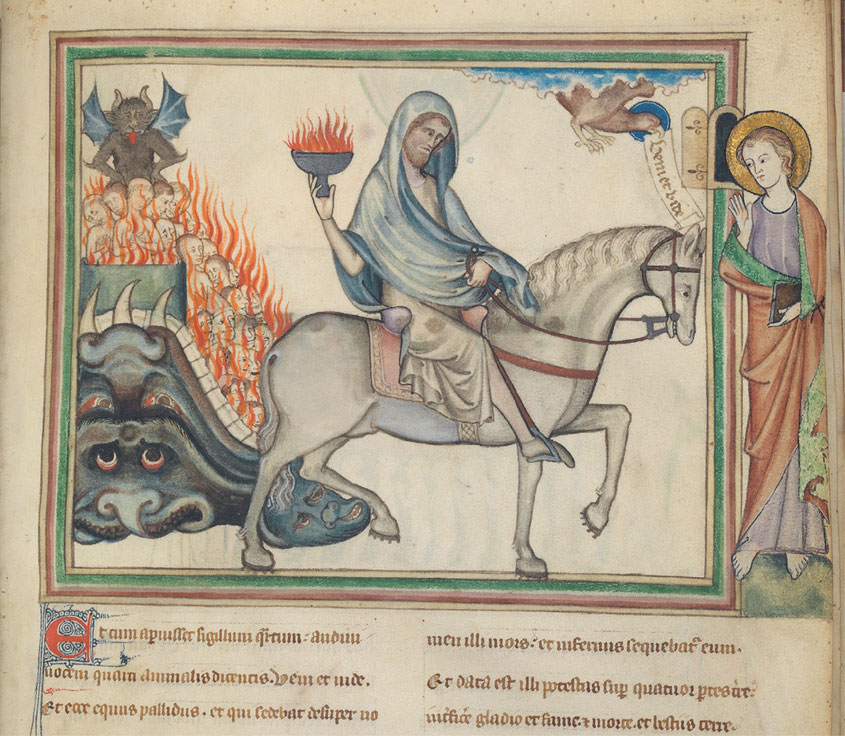 Veni et vide
Et cum apruisset sigillum qrtum. audiui
uocem quarti animalis dicentis. Veni et uide.
Et ecce equus pallidus. et qui sedebat desuper no
men illi mors. et infernus sequebat eum.
Et data est illi potestas sup quatuor ptes tre.
int̾fice gladio et fame. ⁊ morte. et bestiis terre.